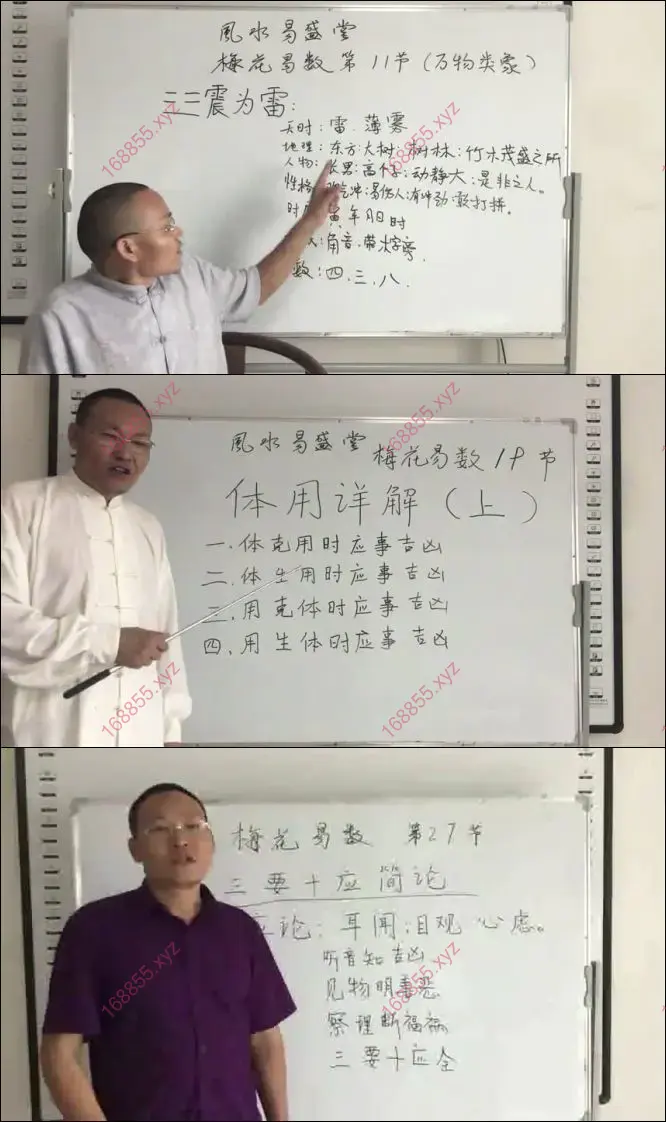 風水易盛堂
梅花易数第11节(万物类象)
三三震为雷:
天时:雷.薄雾
地理:东方:大树:树林:竹木茂盛之所
人物:长男:高个子:动静大:是非之人。
性格 冲:易伤人:有冲劲:敢打拼。
时 寅年月日时
:角音.带木字旁.
数:四.三.八.
168855.xyz
168855.xyz
168855.xyz
168855.xyz
風水易盛堂 梅花易数19节
体用详解(上)
一.体克用时应事吉凶
二.体生用时应事吉凶
三.用克体时应事吉凶
四.用生体时应事吉凶
168855.xyz
168855.xyz
168855.xyz
168855.xyz
梅花易数 第27节
三要十应简论
应论:耳闻:目观 心虑。
听音知吉凶
见物明善恶
察理断福祸
三要十应全
168855.xyz
168855.xyz
168855.xyz
168855.xyz